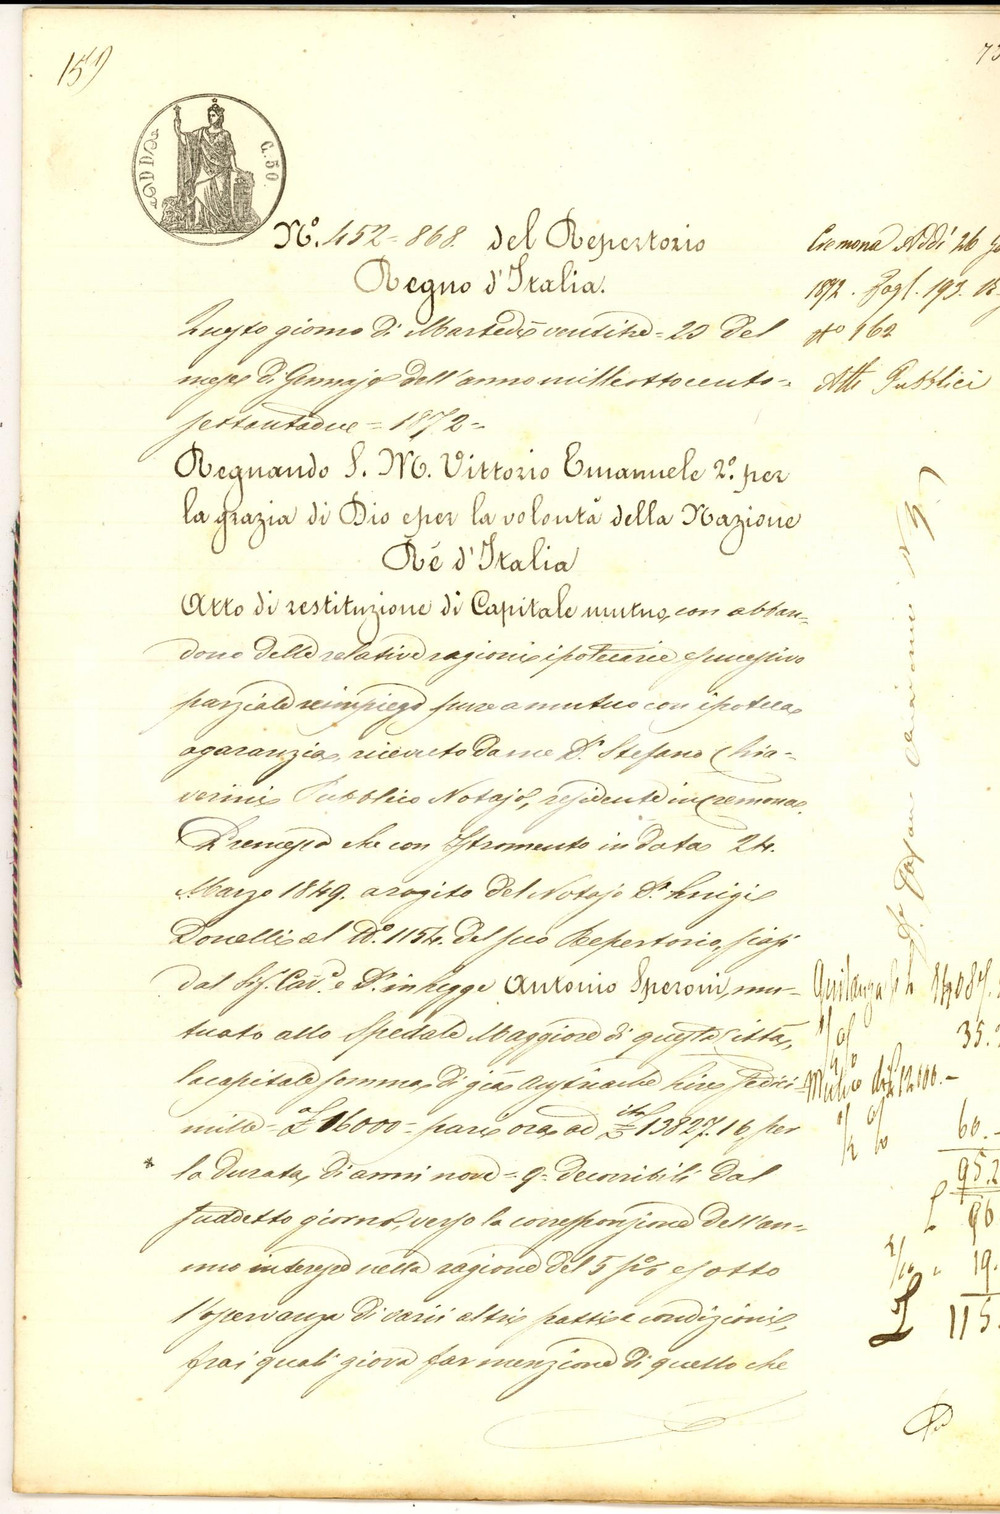 159
C. 50
N.º 452=868 del Repertorio
Regno d'Italia.
Questo giorno di Martedì ventitre=23 del
mese di Gennajo dell'anno mille ottocento-
settantadue = 1872 =
Regnando S. M. Vittorio Emanuele 2º. per
la grazia di Dio e per la volontà della Nazione
Ré d'Italia
Atto di restituzione di Capitale mutuo, con abban-
dono delle relative ragioni ipotecarie e successivo
parziale reimpiego pure a mutuo con ipoteca
a garanzia, ricevuto da me Dr. Stefano Chia-
verini Pubblico Notajo, residente in Cremona.
Premesso che con Istromento in data 24.
Marzo 1849. a rogito del Notajo Dr. Luigi
Donelli al N.º 1154. del suo Repertorio, siasi
dal Sig. Cav.e e Dr. in Legge Antonio Speroni, mu-
tuato allo Spedale Maggiore di questa Città,
la capitale somma, di già Austriache Lire sedici
mille = £ 16000 = pari ora ad £ 13827.16, per
la durata, di anni nove = 9 = decorribili dal
suddetto giorno, verso la corresponsione dell'an-
nuo interesse nella ragione del 5 p% e sotto
l'osservanza di varii altri patti e condizioni,
frai quali giova far menzione di quello che
Cremona Addì 26
1872. Fogl. 193.
Nº 162
Atti Pubblici
Quitanza
35.
Mutuo di £ 12000.-
60.-
95.2
£ 96
2/10 19.
£ 115.